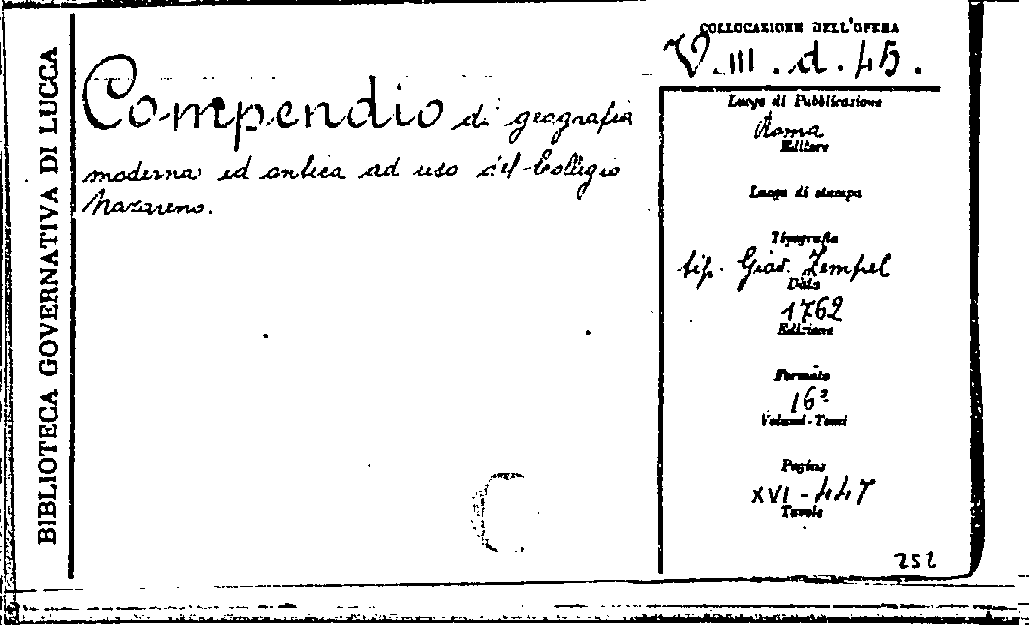 BIBLIOTECA GOVERNATIVA DI LUCCA
Compendio di geografia
moderna ed antica ad uso del Collegio
Nazareno.
COLLOCAZIONE DELL'OPERA
V. III. d. 45.
Luogo di Pubblicazione
Roma
Editore
Luogo di stampa
Tipografia
tip. Giov. Zempel
Data
1762
Edizione
Formato
16º
Volumi - Tomi
Pagine
XVI - 447
Tavole
252